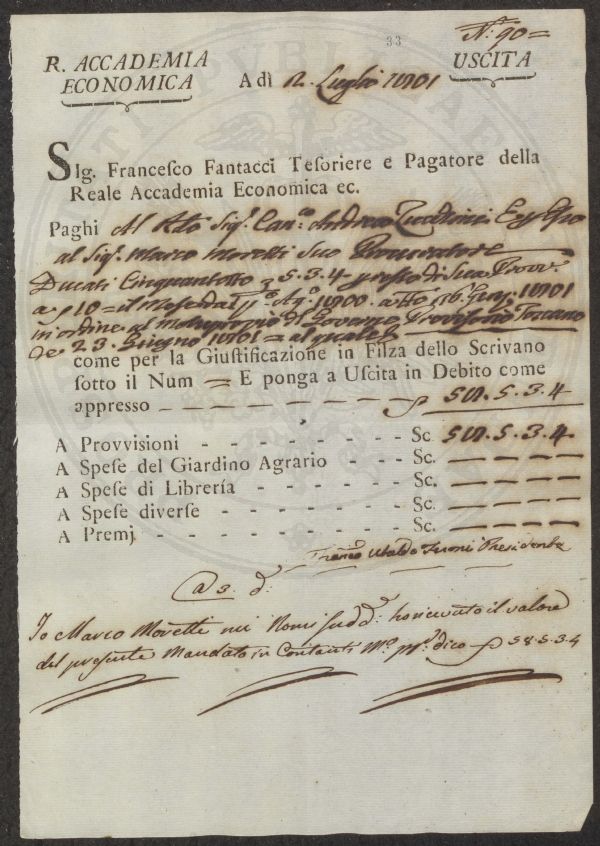 33
N.° 90=
R. ACCADEMIA
ECONOMICA
A dì 2. Luglio 1801
USCITA
SIg. Francesco Fantacci Tesoriere e Pagatore della
Reale Accademia Economica ec.
Paghi Al Sig.r Can.co Andrea Zucchini E p esso
al Sig.r Marco Moretti Suo Procuratore
Ducati Cinquantotto 5.3.4 p resto di Sua Provv.
a 10= il Mese dal p.o Ag.o 1800. a tto 16. 1801
in ordine al motuproprio del Governo Provvisorio Toscano
de 23. Giugno 1801= al quale
come per la Giustificazione in Filza dello Scrivano
sotto il Num = E ponga a Uscita in Debito come
appresso - - - - - - - - 58.5.3.4
A Provvisioni - - - - - - Sc. 58.5.3.4
A Spese del Giardino Agrario - - - - Sc. — — — —
A Spese di Librería - - - - - - Sc. — — — —
A Spese diverse - - - - - - Sc. — — — —
A Premj - - - - - - - - Sc. — — — —
Ubaldo Presidente
@ s. d.
Io Marco Moretti nei Nomi sudd.i ho ricevuto il valore
del presente Mandato in Contanti M.o p.a dico 58.5.3.4